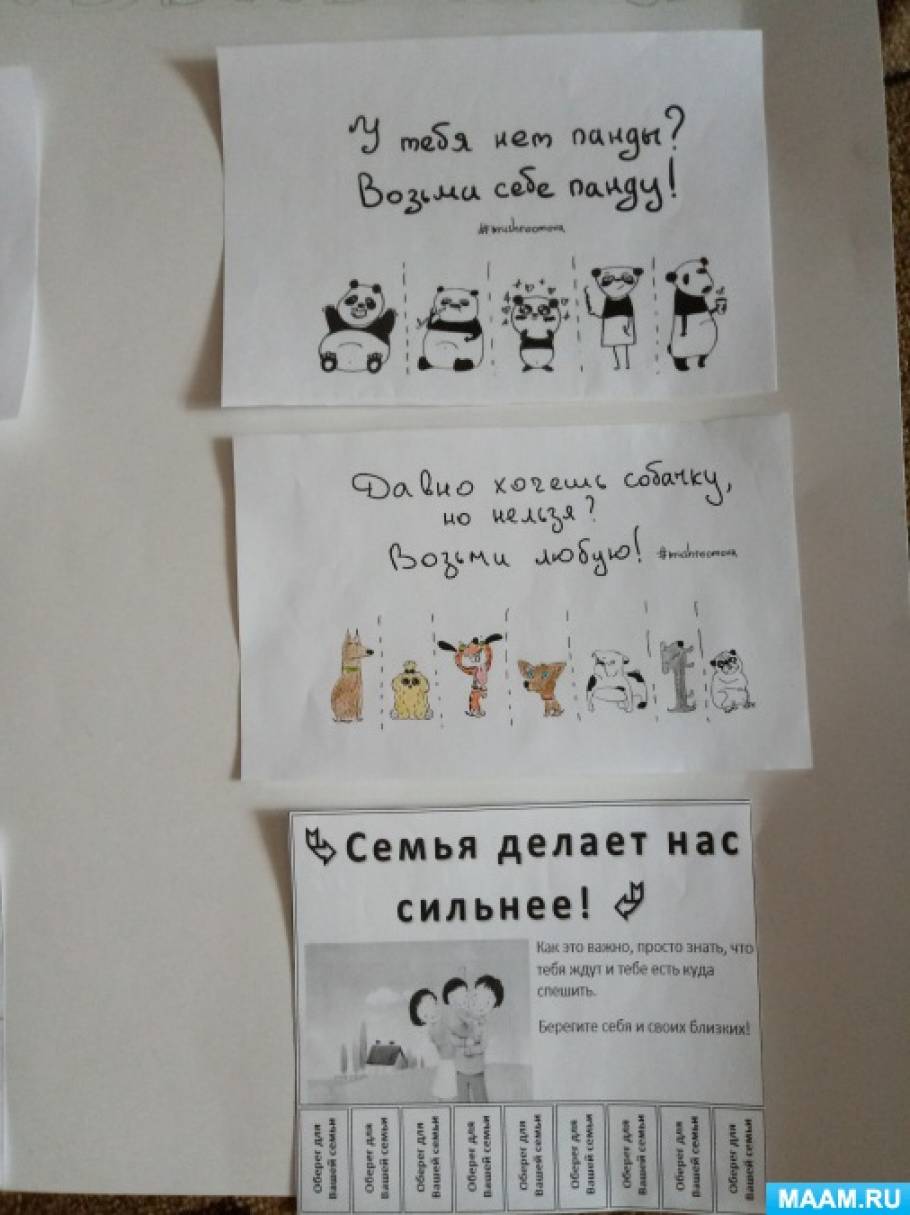 У тебя нет панды?
Возьми себе панду!
#mushroomova
Давно хочешь собачку,
но нельзя?
Возьми любую! #mushroomova
Семья делает нас
сильнее!
Как это важно, просто знать, что
тебя ждут и тебе есть куда
спешить.
Берегите себя и своих близких!
Оберег для
Вашей семьи
Оберег для
Вашей семьи
Оберег для
Вашей семьи
Оберег для
Вашей семьи
Оберег для
Вашей семьи
Оберег для
Вашей семьи
Оберег для
Вашей семьи
Оберег для
Вашей семьи
Оберег для
Вашей семьи
MAAM.RU